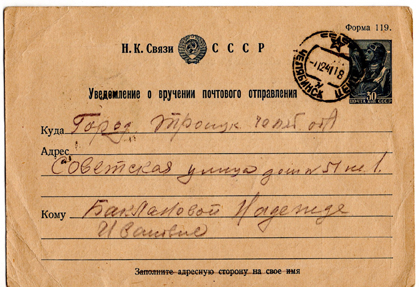 Форма 119.
Н. К. Связи СССР
ЧЕЛЯБИНСК
ПОЧТА СССР
30
Уведомление о вручении почтового отправления
Куда Город Троицк челяб обл
Адрес
Советская улица дом № 51 кв. 1.
Кому Баклановой Надежде
Ивановне
Заполните адресную сторону на свое имя